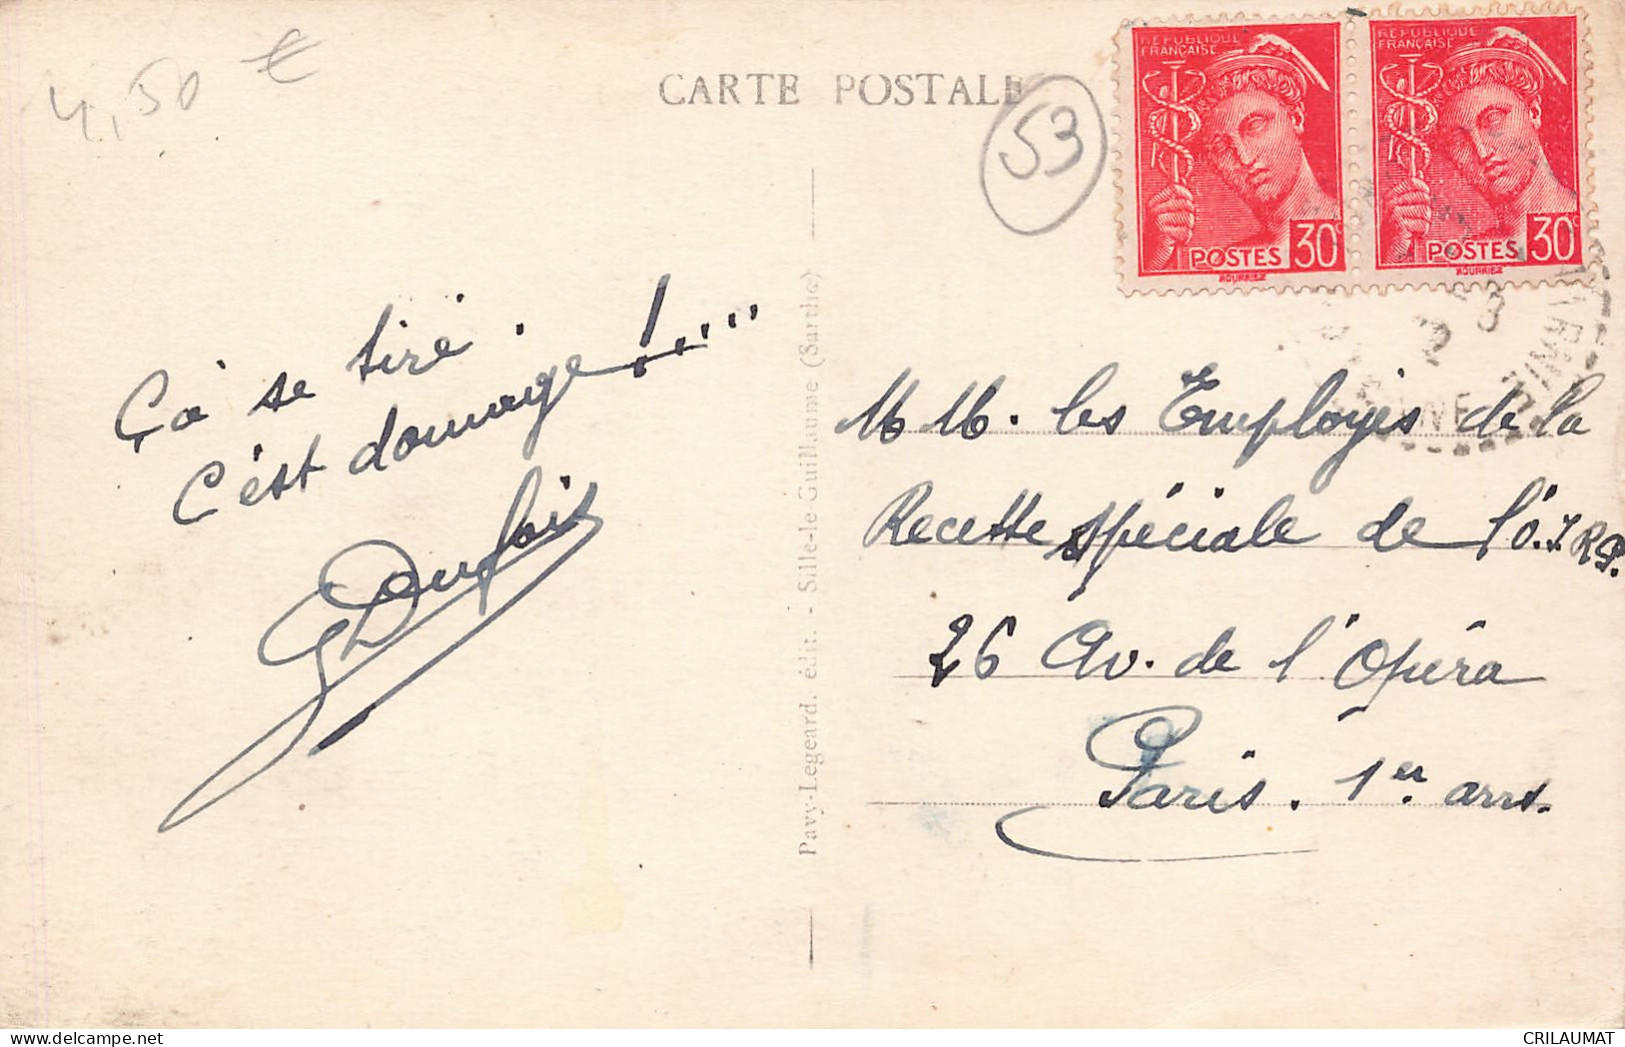 4,50 €
CARTE POSTALE
53
REPUBLIQUE
FRANÇAISE
POSTES 30c
REPUBLIQUE
FRANÇAISE
POSTES 30c
Ça se tire.
C'est domage!....
Pavy-Legeard, édit. - Sillé-le-Guillaume (Sarthe)
M M. les Employés de la
Recette spéciale de l'O.I.R.P.
26 Av. de l'Opéra
Paris. 1er arrt.
CRILAUMAT